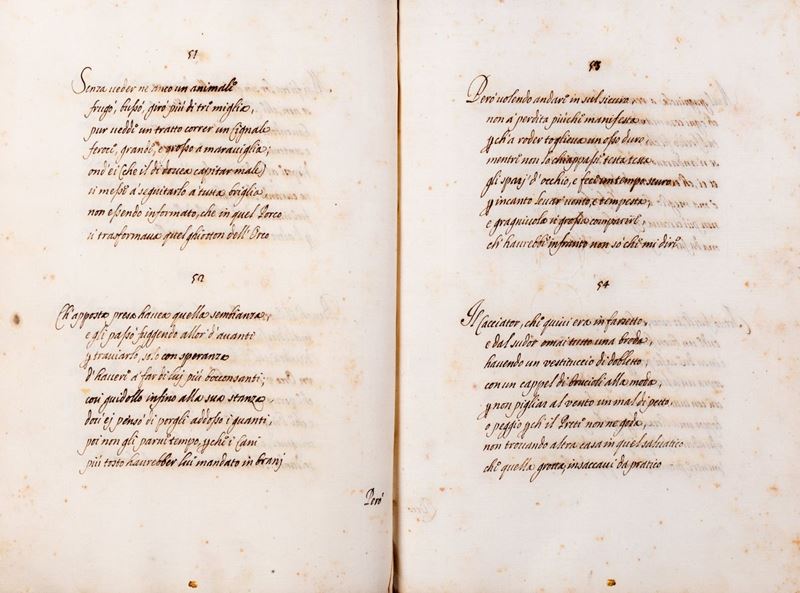 51
Senza veder ne anco un animale
frugò, bussò, girò più di tre miglia,
pur vedde un tratto correr un Cignale
feroce, grande, e grosso a maraviglia;
ond' ei (che il dì dovea capitar male)
si messe a seguitarlo a tutta briglia,
non essendo informato, che in quel Porco
si trasformava quel ghiotton dell' Orco
52
Ch' apposta presa havea quella sembianza,
e gli passò fuggendo allor d' avanti
p traviarlo, solo con speranza
d' haver a far di lui più bocconsanti;
così guidollo infino alla sua stanza,
dov' ei pensò di porgli addosso i guanti,
poi non gli parve tempo, pche i Cani
più tosto haurebber lui mandato in brani
Però
53
Però volendo andare in sul sicuro,
non a perdita più che manifesta,
pch' a roder toglieva un osso duro,
mentre non lo chiappasse testa testa
gli sparì d' occhio, e fece un tempo scuro
p incanto levar vento, e tempesta,
e gragnuola sì grossa comparire,
che haurebbe infranto non sò che mi dire
54
Il Cacciator, che quivi era in farsetto,
e dal sudor omai tutto una broda,
havendo un vestituccio di dobletto,
con un cappel di brucioli alla moda,
p non pigliar al vento un mal di petto
o peggio pch il Prete non ne goda,
non trovando altra casa in quel salvatico
che quella grotta, insaccavi da pratico